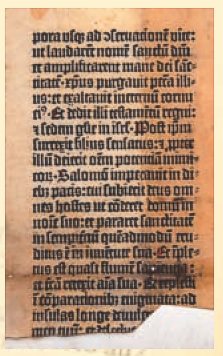 pora usq; ad ↄseruationē vite:
ut laudarent nomē sanctū dn̄i
et amplificarent mane dei sāc-
titatē. xp̄us purgauit pctā illi-
us: et exaltauit in eternū cornu
ei⁹. Et dedit illi testamētū regni:
⁊ sedem gl̄ie in isrl̄. Post ip̄m
surrexit filius sensatus: ⁊ ꝓpter
illū deiecit oēm potenciā inimi-
coꝝ. Salomō imperauit in di-
ebꝫ pacis: cui subiecit deus om-
nes hostes ut cōderet domū in
noīe suo: et pararet sanctitatē
in sempiternū quēadmodū eru-
ditus ē in iuuētute sua. Et īple-
tus est quasi flumē sapientia:
et terrā retexit aīa sua. Et replesti
ī cōparacionibꝫ enigmata: ad
insulas longe